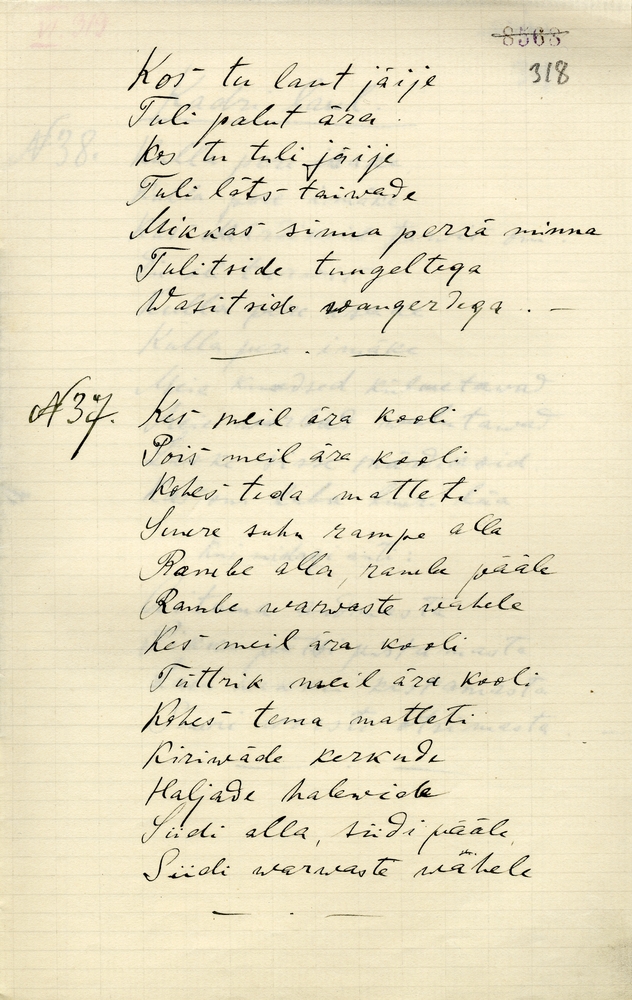 8563
318
Kos tu laut jäije
Tuli palut ära.
Kos tu tuli jäije
Tuli läts taiwade
Mikkas sinna perrä minna
Tulitside tungeltega
Wasitside wangerdega. —
N 37.
Kes meil ära kooli
Pois meil ära kooli
Kohes teda matleti
Suure suhu rampe alla
Rambe alla, rambe pääle
Rambe warwaste wähele
Kes meil ära kooli
Tüttrik meil ära kooli
Kohes tema matleti
Kiriwäde kerkude
Haljade halewide
Siidi alla, siidi pääle
Siidi warwaste wähele